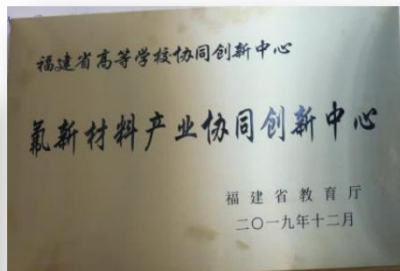 福建省高等学校协同创新中心
氟新材料产业协同创新中心
福建省教育厅
二〇一九年十二月